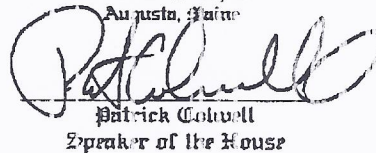 Augusta, Maine
Pat Colwell
Patrick Colwell
Speaker of the House